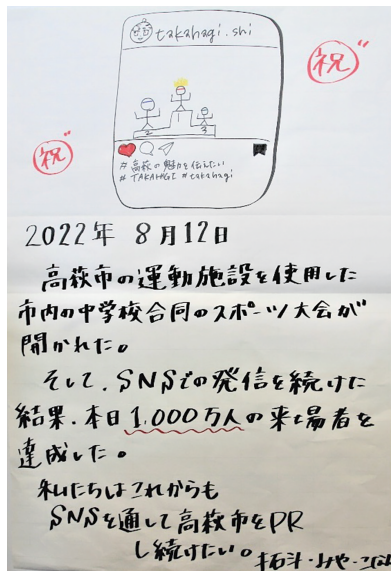 takahagi.shi
祝
祝
2
1
3
#高萩の魅力を伝えたい
#TAKAHAGI #takahagi
2022年 8月12日
高萩市の運動施設を使用した
市内の中学校合同のスポーツ大会が
開かれた。
そして、SNSでの発信を続けた
結果、本日1,000万人の来場者を
達成した。
私たちはこれからも
SNSを通して高萩市をPR
し続けたい。 拓斗・みや・こなみ